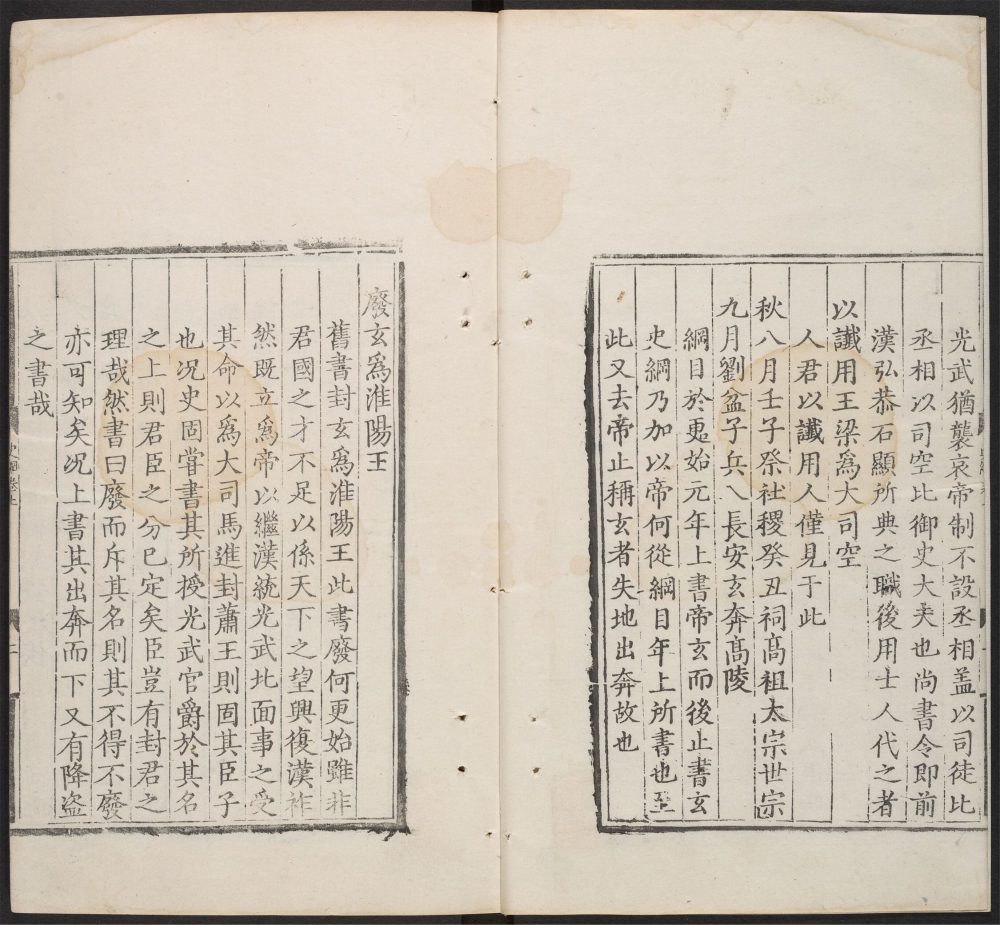 光武猶襲哀帝制不設丞相盖以司徒比
丞相以司空比御史大夫也尚書令即前
漢弘恭石顯所典之職後用士人代之者
以讖用王梁爲大司空
人君以讖用人僅見于此
秋八月壬子祭社稷癸丑祠髙祖太宗世宗
九月劉盆子兵入長安玄奔髙陵
綱目於更始元年上書帝玄而後止書玄
史綱乃加以帝何從綱目年上所書也至
此又去帝止稱玄者失地出奔故也
廢玄爲淮陽王
舊書封玄爲淮陽王此書廢何更始雖非
君國之才不足以係天下之望興復漢祚
然既立爲帝以繼漢統光武北面事之受
其命以爲大司馬進封蕭王則固其臣子
也况史固嘗書其所授光武官爵於其名
之上則君臣之分已定矣臣豈有封君之
理哉然書曰廢而斥其名則其不得不廢
亦可知矣况上書其出奔而下又有降盗
之書哉